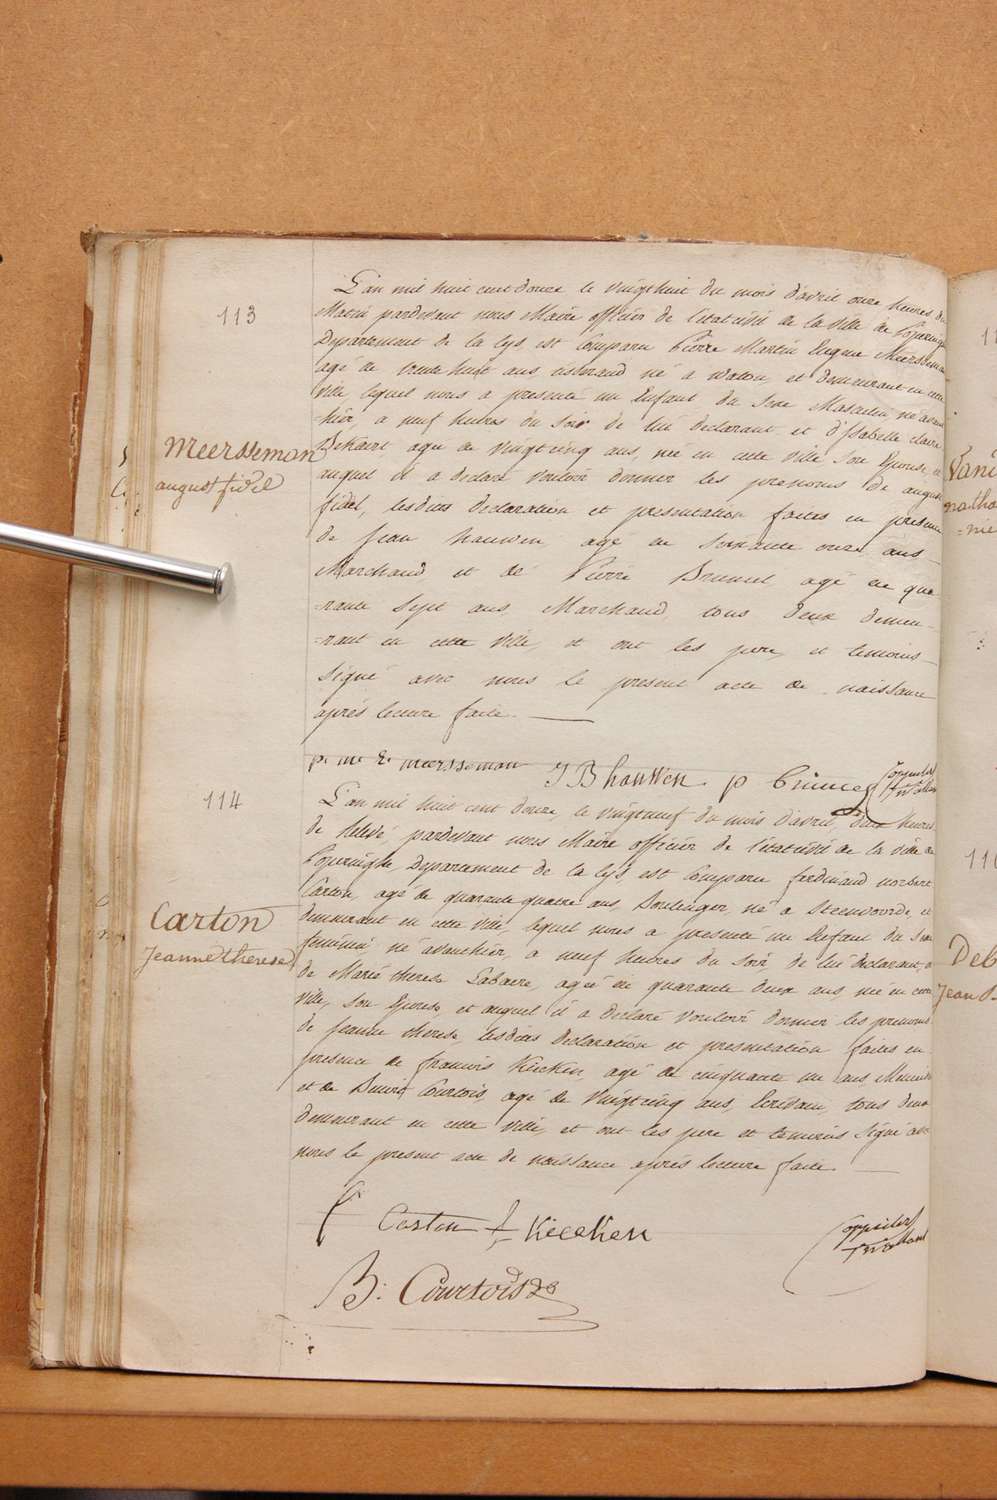 113
L'an mil huit cent douze le vingthuit du mois d'avril onze heures du
Matin pardevant nous Maire officier de l'état civil de la ville de Poperinghe
Departement de la lys, est comparu Pierre Martin Eugene Meersseman
agé de trente huit ans né a Watou, et demeurant en cette
ville, lequel nous a presenté un Enfant du sexe Masculin, né avant
-hier, a neuf heures du soir de lui declarant et d'Isabelle claire
agée de vingtcinq ans, née en cette ville son Epouse, et
auquel il a declaré vouloir donner les prenoms de august
fidel, lesdites declaration et presentation faites en presence
de Jean hauwen agé de soixante onze ans
Marchand et de Pierre agé de qua-
-rante sept ans, Marchand, tous deux demeu-
-rant en cette ville, et ont les pere, et temoins
signé avec nous le present acte de naissance
après lecture faite.
Meersseman
august fidel
p. m. E. meersseman J B hauwen p
114
L'an mil huit cent douze, le vingtneuf du mois d'avril, deux heures
de relevé, pardevant nous Maire officier de l'état civil de la ville de
Poperinghe, Departement de la lys, est comparu ferdinand norbert
Carton, agé de quarante quatre ans Boulanger, né a Steenvoorde, et
demeurant en cette ville, lequel nous a presenté un Enfant du sexe
feminin, né avanthier, a neuf heures du soir, de lui declarant, et
de Marie therese Labaere, agée de quarante deux ans, née en cette
ville, son Epouse, et auquel il a declaré vouloir donner les prenoms
de Jeanne therese, lesdites declaration et presentation faites en
presence de francois Kiecken, agé de cinquante un ans, Menuisier
et de Benoit Courtois, agé de vingtcinq ans, Ecrivain, tous deux
demeurant en cette ville, et ont les pere et temoins signé avec
nous le present acte de naissance après lecture faite.
Carton
Jeanne therese
Carton f Kiecken
B: Courtois
Vani
natha
-nie
11
Deb
Jean B